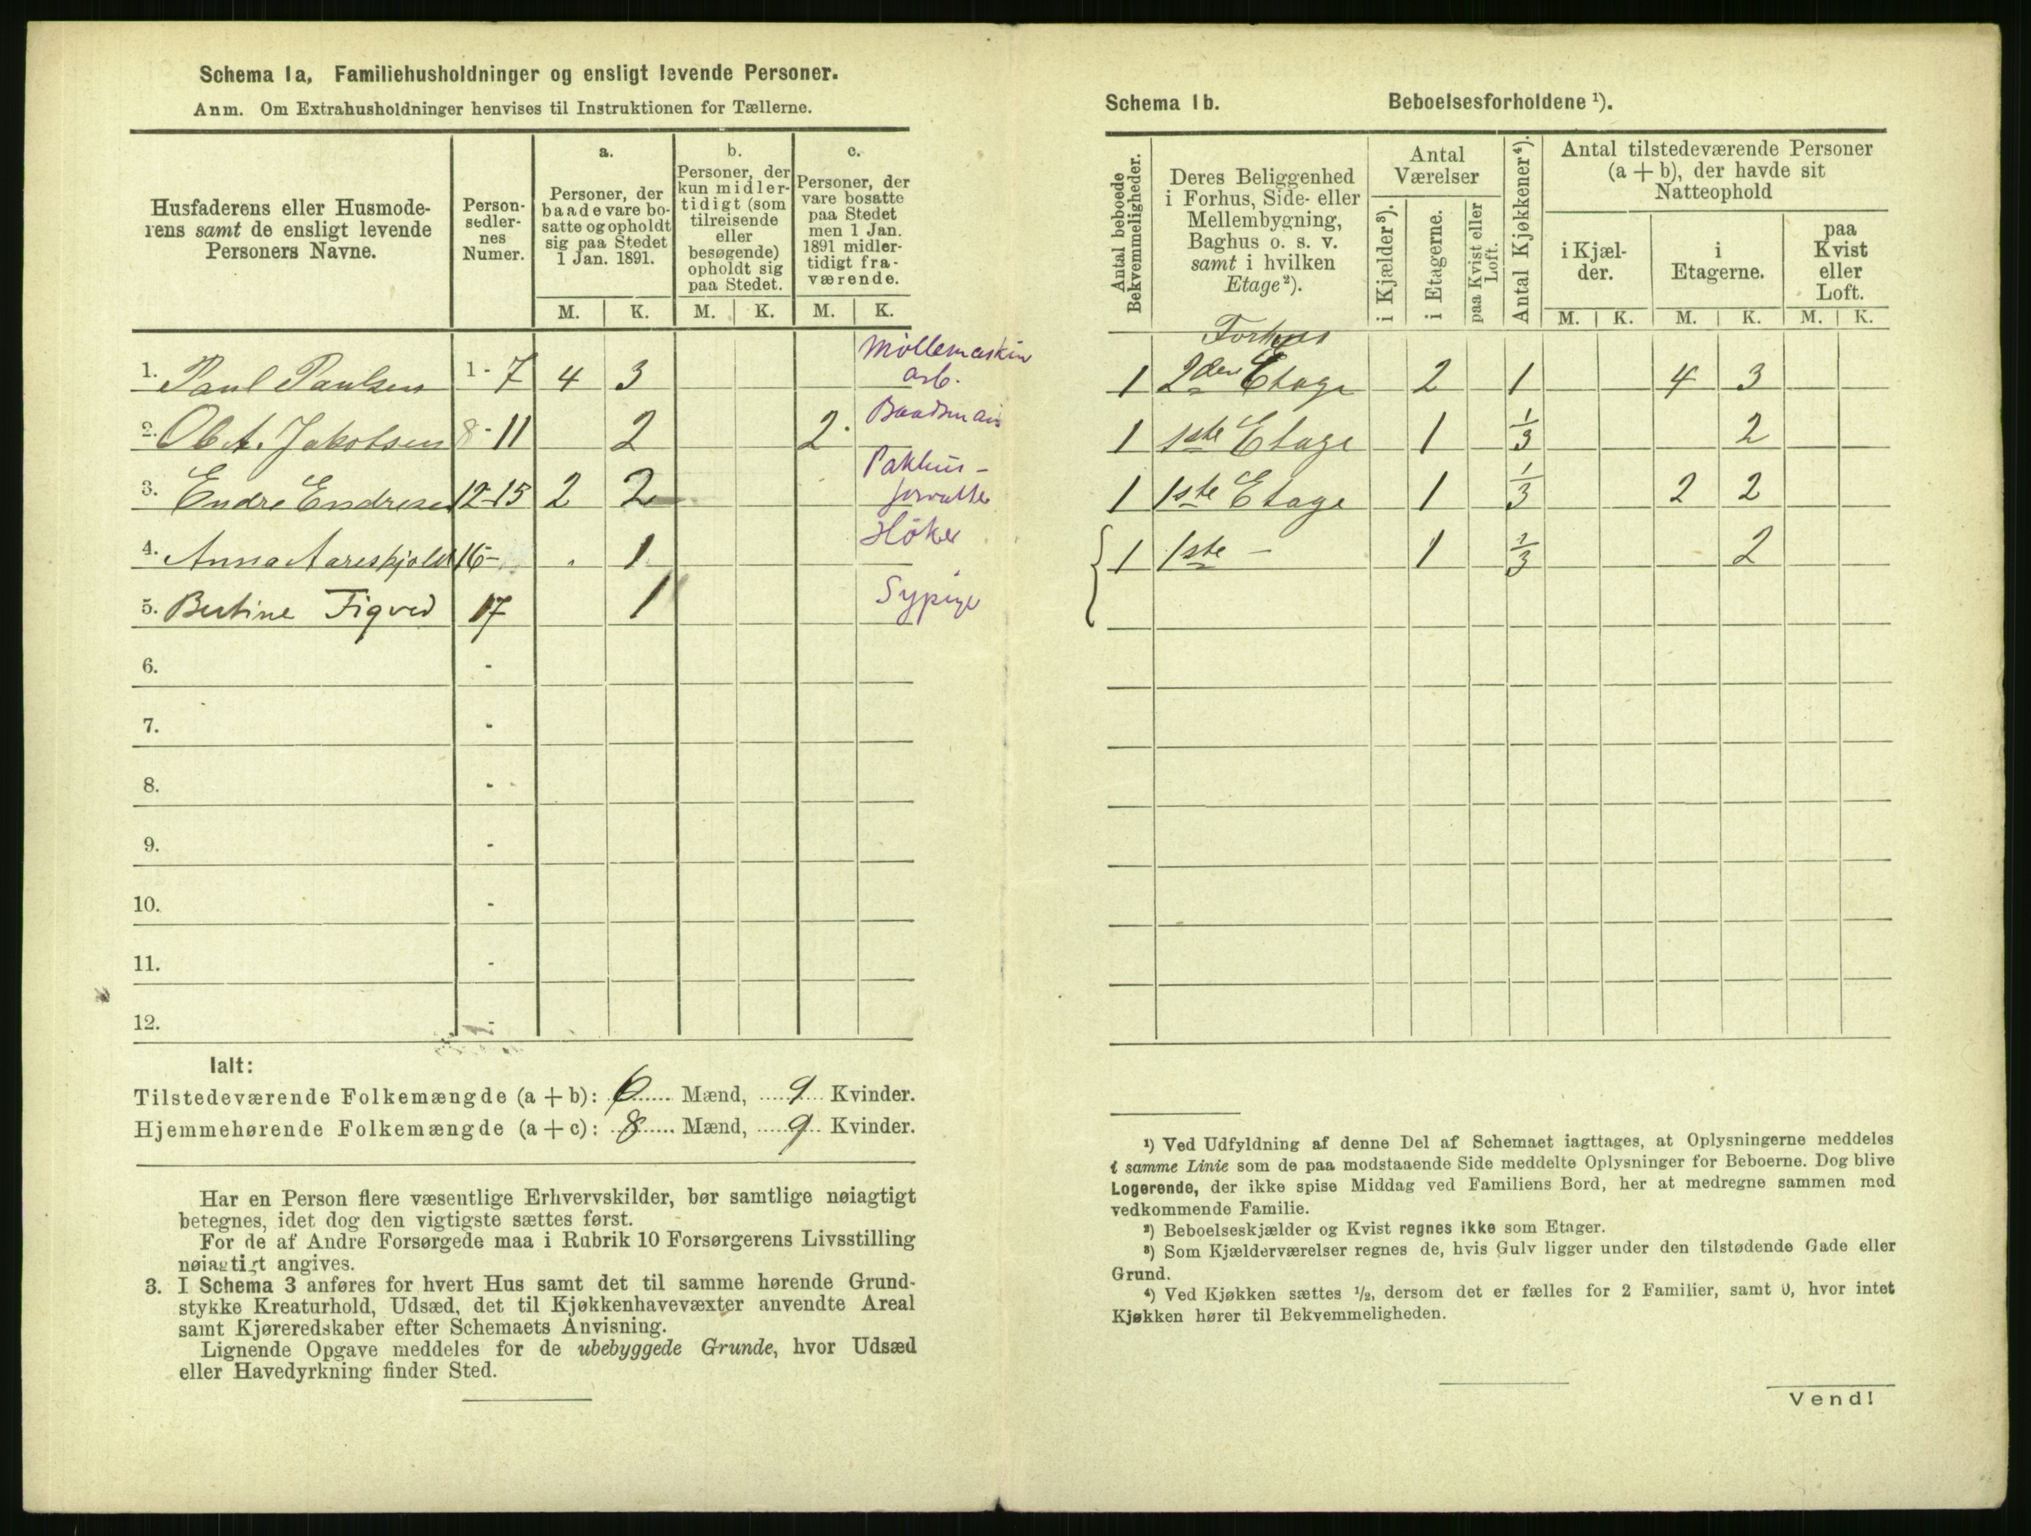 Schema 1a, Familiehusholdninger og ensligt levende Personer.
Anm. Om Extrahusholdninger henvises til Instruktionen for Tællerne.
Husfaderens eller Husmoderens samt de ensligt levende Personers Navne.
Personsedlernes Numer.
a.
Personer, der baade vare bosatte og opholdt sig paa Stedet 1 Jan. 1891.
b.
Personer, der kun midlertidigt (som tilreisende eller besøgende) opholdt sig paa Stedet.
c.
Personer, der vare bosatte paa Stedet men 1 Jan. 1891 midlertidigt fraværende.
M. K. M. K. M. K.
1. Paul Paulsen 1-7 4 3 Møllemaskin arb.
2. Ole A. Jakobsen 8-11 2 2. Baadsman
3. Endre Endresen 12-15 2 2 Pakhus-forvalter
4. Anna Aareskjold 16- . 1 Høker
5. Bertine Tiqved 17 1 Sypige
6. -
7. -
8. -
9. -
10. -
11. -
12. -
Ialt:
Tilstedeværende Folkemængde (a + b): 6 Mænd, 9 Kvinder.
Hjemmehørende Folkemængde (a + c): 8 Mænd, 9 Kvinder.
Har en Person flere væsentlige Erhvervskilder, bør samtlige nøiagtigt
betegnes, idet dog den vigtigste sættes først.
For de af Andre Forsørgede maa i Rubrik 10 Forsørgerens Livsstilling
nøiagtigt angives.
3. I Schema 3 anføres for hvert Hus samt det til samme hørende Grund-
stykke Kreaturhold, Udsæd, det til Kjøkkenhavevæxter anvendte Areal
samt Kjøreredskaber efter Schemaets Anvisning.
Lignende Opgave meddeles for de ubebyggede Grunde, hvor Udsæd
eller Havedyrkning finder Sted.
Schema 1b. Beboelsesforholdene ¹).
Antal beboede Bekvemmeligheder.
Deres Beliggenhed i Forhus, Side- eller Mellembygning, Baghus o. s. v. samt i hvilken Etage²).
Antal Værelser
i Kjælder³).
i Etagerne.
paa Kvist eller Loft.
Antal Kjøkkener⁴).
Antal tilstedeværende Personer (a + b), der havde sit Natteophold
i Kjælder.
i Etagerne.
paa Kvist eller Loft.
M. K. M. K. M. K.
Forhus
1 2den Etage 2 1 4 3
1 1ste Etage 1 1/3 2
1 1ste Etage 1 1/3 2 2
1 1ste - 1 1/3 2
¹) Ved Udfyldning af denne Del af Schemaet iagttages, at Oplysningerne meddeles
i samme Linie som de paa modstaaende Side meddelte Oplysninger for Beboerne. Dog blive
Logerende, der ikke spise Middag ved Familiens Bord, her at medregne sammen med
vedkommende Familie.
²) Beboelseskjælder og Kvist regnes ikke som Etager.
³) Som Kjælderværelser regnes de, hvis Gulv ligger under den tilstødende Gade eller
Grund.
⁴) Ved Kjøkken sættes ½, dersom det er fælles for 2 Familier, samt 0, hvor intet
Kjøkken hører til Bekvemmeligheden.
Vend!